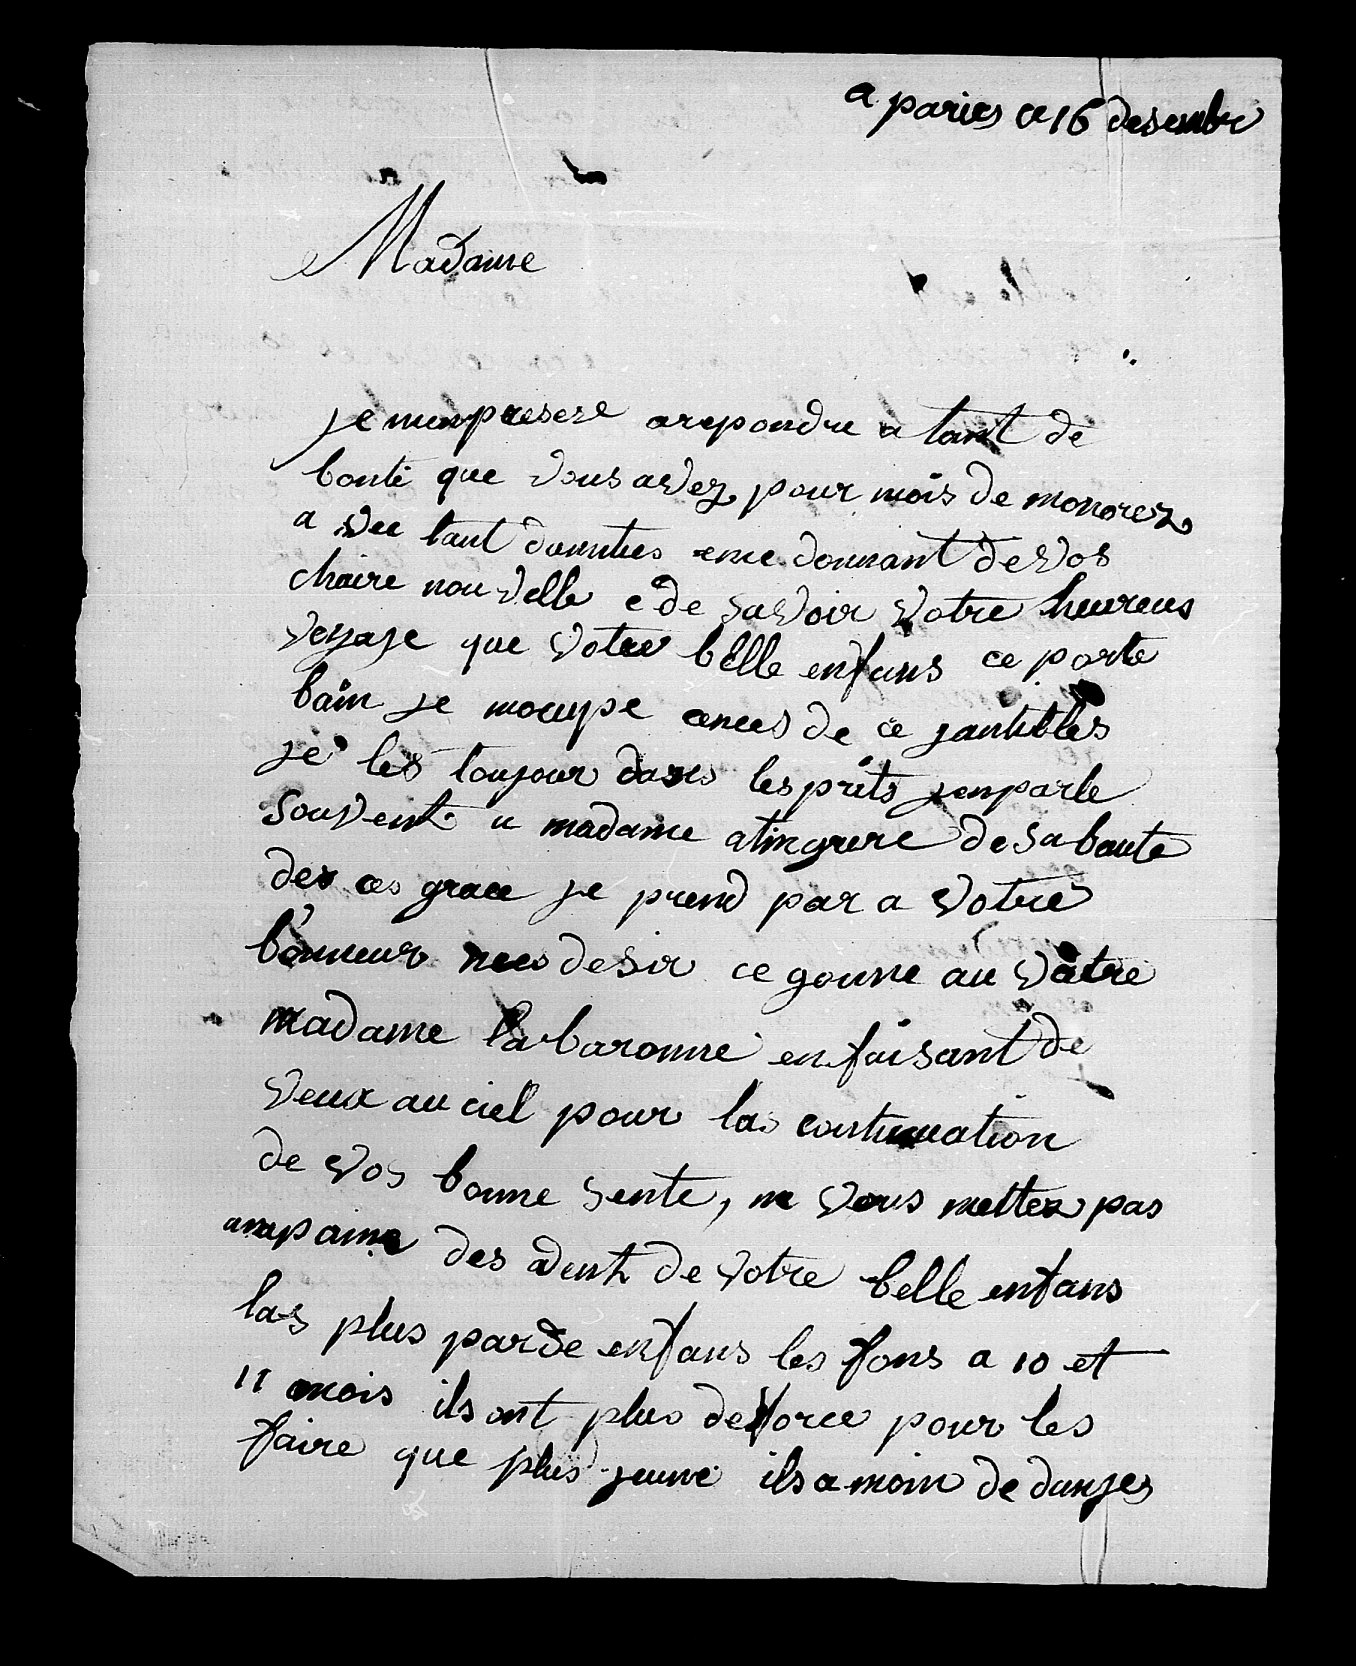 a paries ce 16 desembre
Madame
je menpresese arepondre a tant de
bonté que vous avez pour mois de monorez
a vec tant damties eme donnant de vos
chaire nouvelle e de savoir votre heureus
voyaje que votre belle enfans ce porte
bain je mocupe ences de ce jantilles
je les toujour dans lesprits jenparle
souvent a madame atingrere de sa bonte
des ces grace je prend par a votre
bonneur mes desir ce gonne au vatre
madame la baronne en faisant de
veux au ciel pour las continuation
de vos bonne sente, ne vous mettez pas
anapaine des adent de votre belle enfans
las plus parde enfans les fons a 10 et
11 mois ils ont plus de force pour les
faire que plus jeune ils a moin de danjes